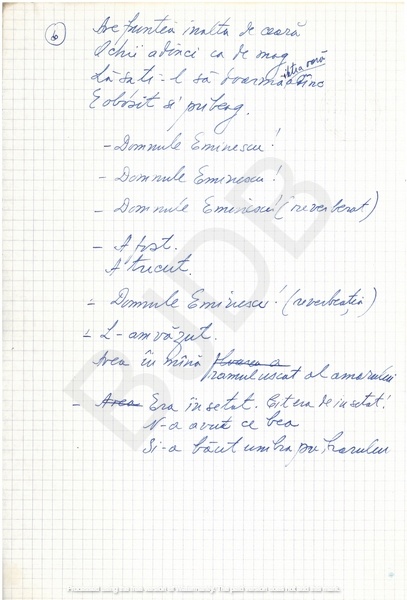 6
Are fruntea înaltă de ceară
Ochii adînci ca de mag
Lăsați-l să doarmă adînc
astea vară
E obosit și pribeag.
- Domnule Eminescu!
- Domnule Eminescu!
- Domnule Eminescu! (reverberat)
- A fost.
A trecut.
- Domnule Eminescu! (reverberație)
- L-am văzut.
Avea în mînă floarea a ramul uscat al amarului
- Avea Era însetat. Cît era de însetat!
N-a avut ce bea
Și-a băut umbra paharului
BUDB